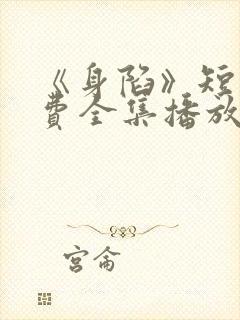 《身陷》短
费全集播放
宫禽